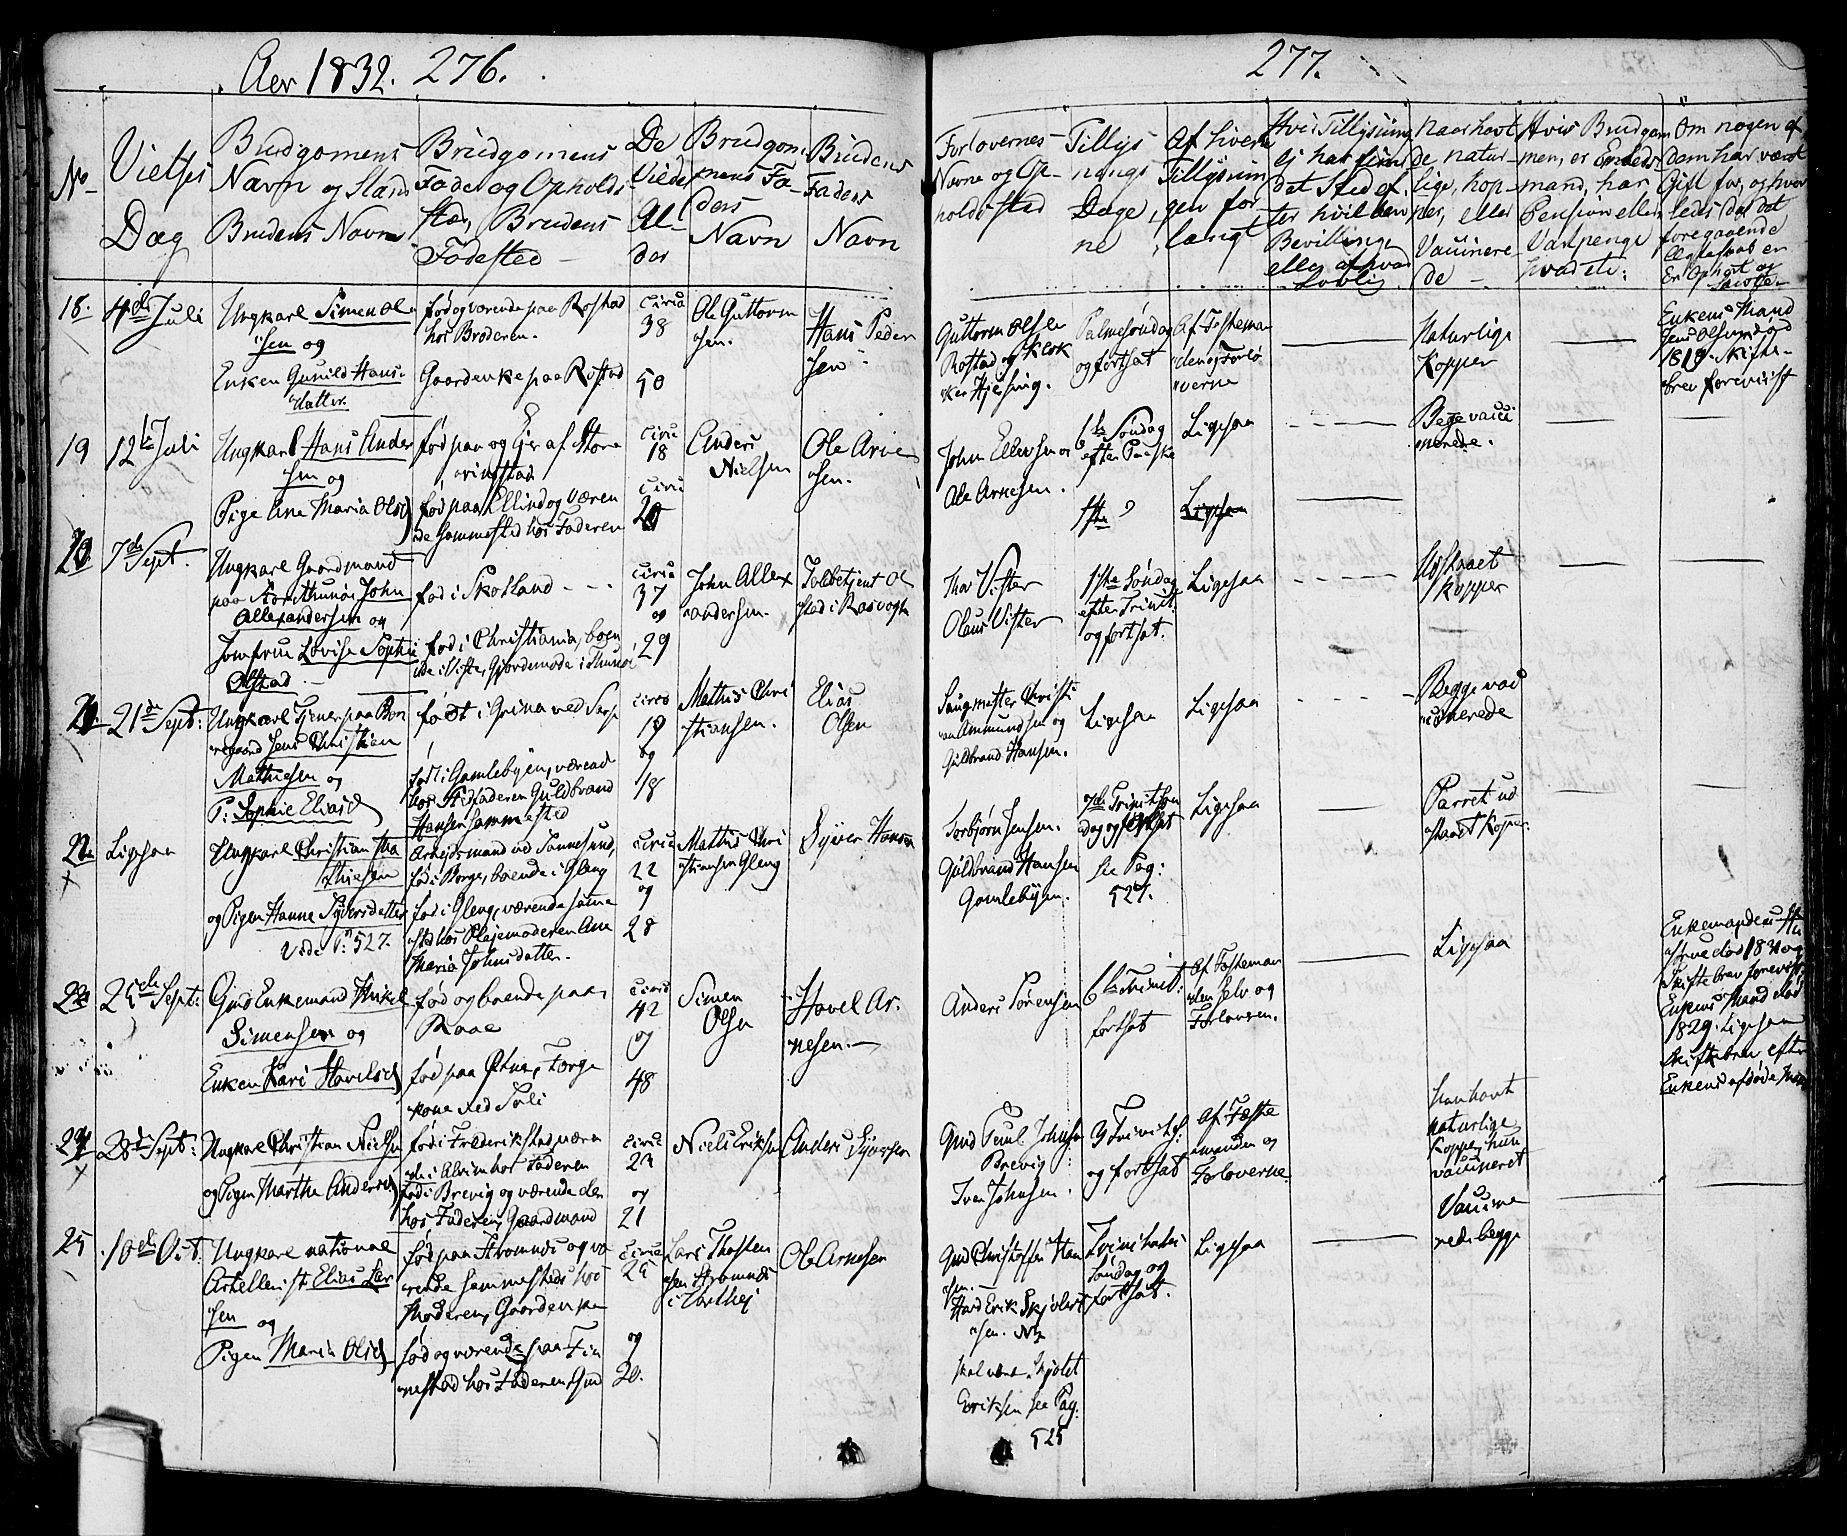 Aar 1832. 276.
No
Vielses
Dag
Brudgomens
Navn og Stand
Brudens Navn
Brudgomens
Føde og Opholds
sted, Brudens
Fødested
De
Viedes
Al-
der
Brudgom
mens Fa-
ders
Navn
Brudens
Faders
Navn
18. 4de Juli
Ungkarl Simen Ol-
sen og
Enken Gunild Hans-
datter.
fød og værende paa Rostad
hos Broderen.
Gaardenke paa Rostad
circa
38
50
Ole Guttorm
sen.
Hans Peder
sen
19 12te Juli
Ungkarl Hans Ander
sen og
Pige Ane Maria Olsd
fød paa og Ejer af Store
fød paa Ellind og væren
de sammested hos Faderen
circa
18
circa
20
Anders
Nielsen
Ole Arne
sen.
20 7de Sept.
Ungkarl Gaardmand
John
Allexandersen og
Jomfrue Lovise Sophie
Olstad
fød i Skotland - - -
fød i Christiania, boen
circa
37
og
29
John Allex
andersen.
Toldbetjent Ol
stad i
21 21de Sept:
Ungkarl Tjener paa Bor
regaard Jens Christian
Mathiesen og
P: Sophie Eliasd
født i Grina ved Sarp
fød i Gamlebyen, værend
hos Stedfaderen Guldbrand
Hansen sammested
circa
19
og
18
Mathis Chri
stiansen.
Elias
Olsen
22 Ligesaa
Ungkarl Christian Ma
thiesen
og Pigen Hanne Syversdatter
Vide P: 527.
Arbejdsmand ved Sannesund,
fød i Borge, boende i Gleng
fød i Gleng, værende samme
sted hos Plejemoderen Ane
Maria Johnsdatter.
circa
22
og
28
Mathis Chri
stiansen Gleng
Syver Hansen
23 25de Sept:
Gmd Enkemand Mikel
Simensen og
Enken Kari Havelsd
fød og boende paa
Raae
kone ved Soli
circa
42
og
48
Simen
Olsen
Havel Ar-
nesen.
24 28de Sept:
Ungkarl Christian Nielsen
og Pigen Marthe Andersd
fød i Frederikstad, være
de i Alvim hos Faderen
fød i Brevig og værende der
hos Faderen, Gaardmand
circa
23
og
21
Niels Eriksen
Anders Syversen
25 10de Oct:
Ungkarl national
Artellerist Elias Lar
sen og
Pigen Maria Olsd
fød paa Stromnes og væ
rende sammesteds hos
Moderen, Gaardenke
fød og værende paa Fin
nestad hos Faderen, Gmd
circa
25
og
20.
Lars Thosten
sen Stromnes
i Varthej
Ole Arnesen
277.
Forlovernes
Navne og Op-
holdssted
Tillys-
nings
Dage
ne
Af hvem
Tillysnin
gen for-
langt
Hvis Tillysning
ej har fun
det Sted ef-
ter hvilken
Bevilling
eller af hvad
Lovlig
Naar havt
de natur-
lige, kop-
per, eller
Vaccinere
de
Hvis Brudgom
men, er Enleds-
mand, har
Pension eller
Vartpenge
hvad etc:
Om nogen af
dem har været
Gift før, og hvor
ledes da det
foregaaende
Ægteskab er
Er Ophørt og
Guttorm Olsen
Rostad og Klok
ker Hjelsing.
Palmesøndag
og fortsat
Af Fæsteman
den og Forlo
verne
Naturlige
Kopper
Enkens Mand
Jens Olsen død
1819. Skifte-
brev forevist
John Ellevsen og
Ole Arnesen.
1te Søndag
efter Paaske
Ligesaa
Begge vacci
nerede.
1ste
Ligesaa
Thor Vister
Olaus Vister
1ste Søndag
efter Trinit.
og fortsat.
Ligesaa
Udstaaet
Kopper
Saugmester Christi
an Ammundsen og
Guldbrand Hansen.
Ligesaa
Ligesaa
Begge vac
cinerede
Torbjørn Jensen.
Guldbrand Hansen
Gamlebyen.
7de Trinit Søn
dag og fortsat
see Pag:
527.
Ligesaa
Parret ud
staaet Kopper
Anders Sørensen
6te Trinit:
fortsat
Af Fæsteman
den selv og
Forloveren.
Ligesaa
Enkemandens Hu
strue død 1831 og
Skiftebrev forevist
Enkens Mand død
1829. Ligesaa
Skiftebrev efter
Enkens afdøde Mand
Gmd Poul Johnsen
Brevig
Iver Johnsen.
3 Trinitat:
og fortsat
Af Fæste
manden og
Forloverne
Han havt
naturlige
Kopper, hun
vaccineret
Gmd Christoffer Han
sen.
Hans Erik Skjolett
sen. NB
skal være Skjolet
Eriksen see Pag:
525
Trinitatis
Søndag og
fortsat.
Ligesaa
Vaccine
rede begge